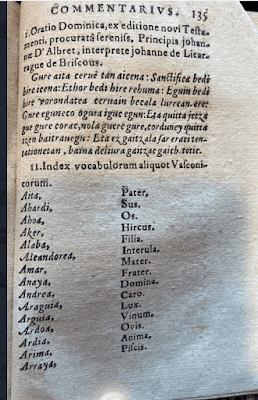 COMMENTARIVS. 135
1. Oratio Dominica, ex editione novi Testa-
menti, procuratâ sereniss. Principis johan-
næ D'Albret, interprete johanne de Licar-
rague de Briscous.
Gure aita cerue tan aicena: Sanctifica bedi
hire icena: Ethor bedi hire rehuma: Eguin bedi
hire vorondatea ceruain becala lurrean ere:
Gure eguneco ogura igue egun: Eta quitta jetza
gue gure corac, nola guere gure, corduney quitta
tzen baitrauegu: Eta ez gaitzala far eraci ten-
tationetan, baina deliura gaitzac gaich totic.
11. Index vocabulorum aliquot Vasconi-
corum.
Aita, Pater,
Ahardi, Sus.
Ahoa, Os.
Aker, Hircus.
Alaba, Filia.
Aleandorea, Interula.
Amar, Mater.
Anaya, Frater.
Andrea, Domina.
Araguia, Caro.
Arguia, Lux.
Ardoa, Vinum.
Ardia, Ovis.
Arima, Anima.
Arraya, Piscis.